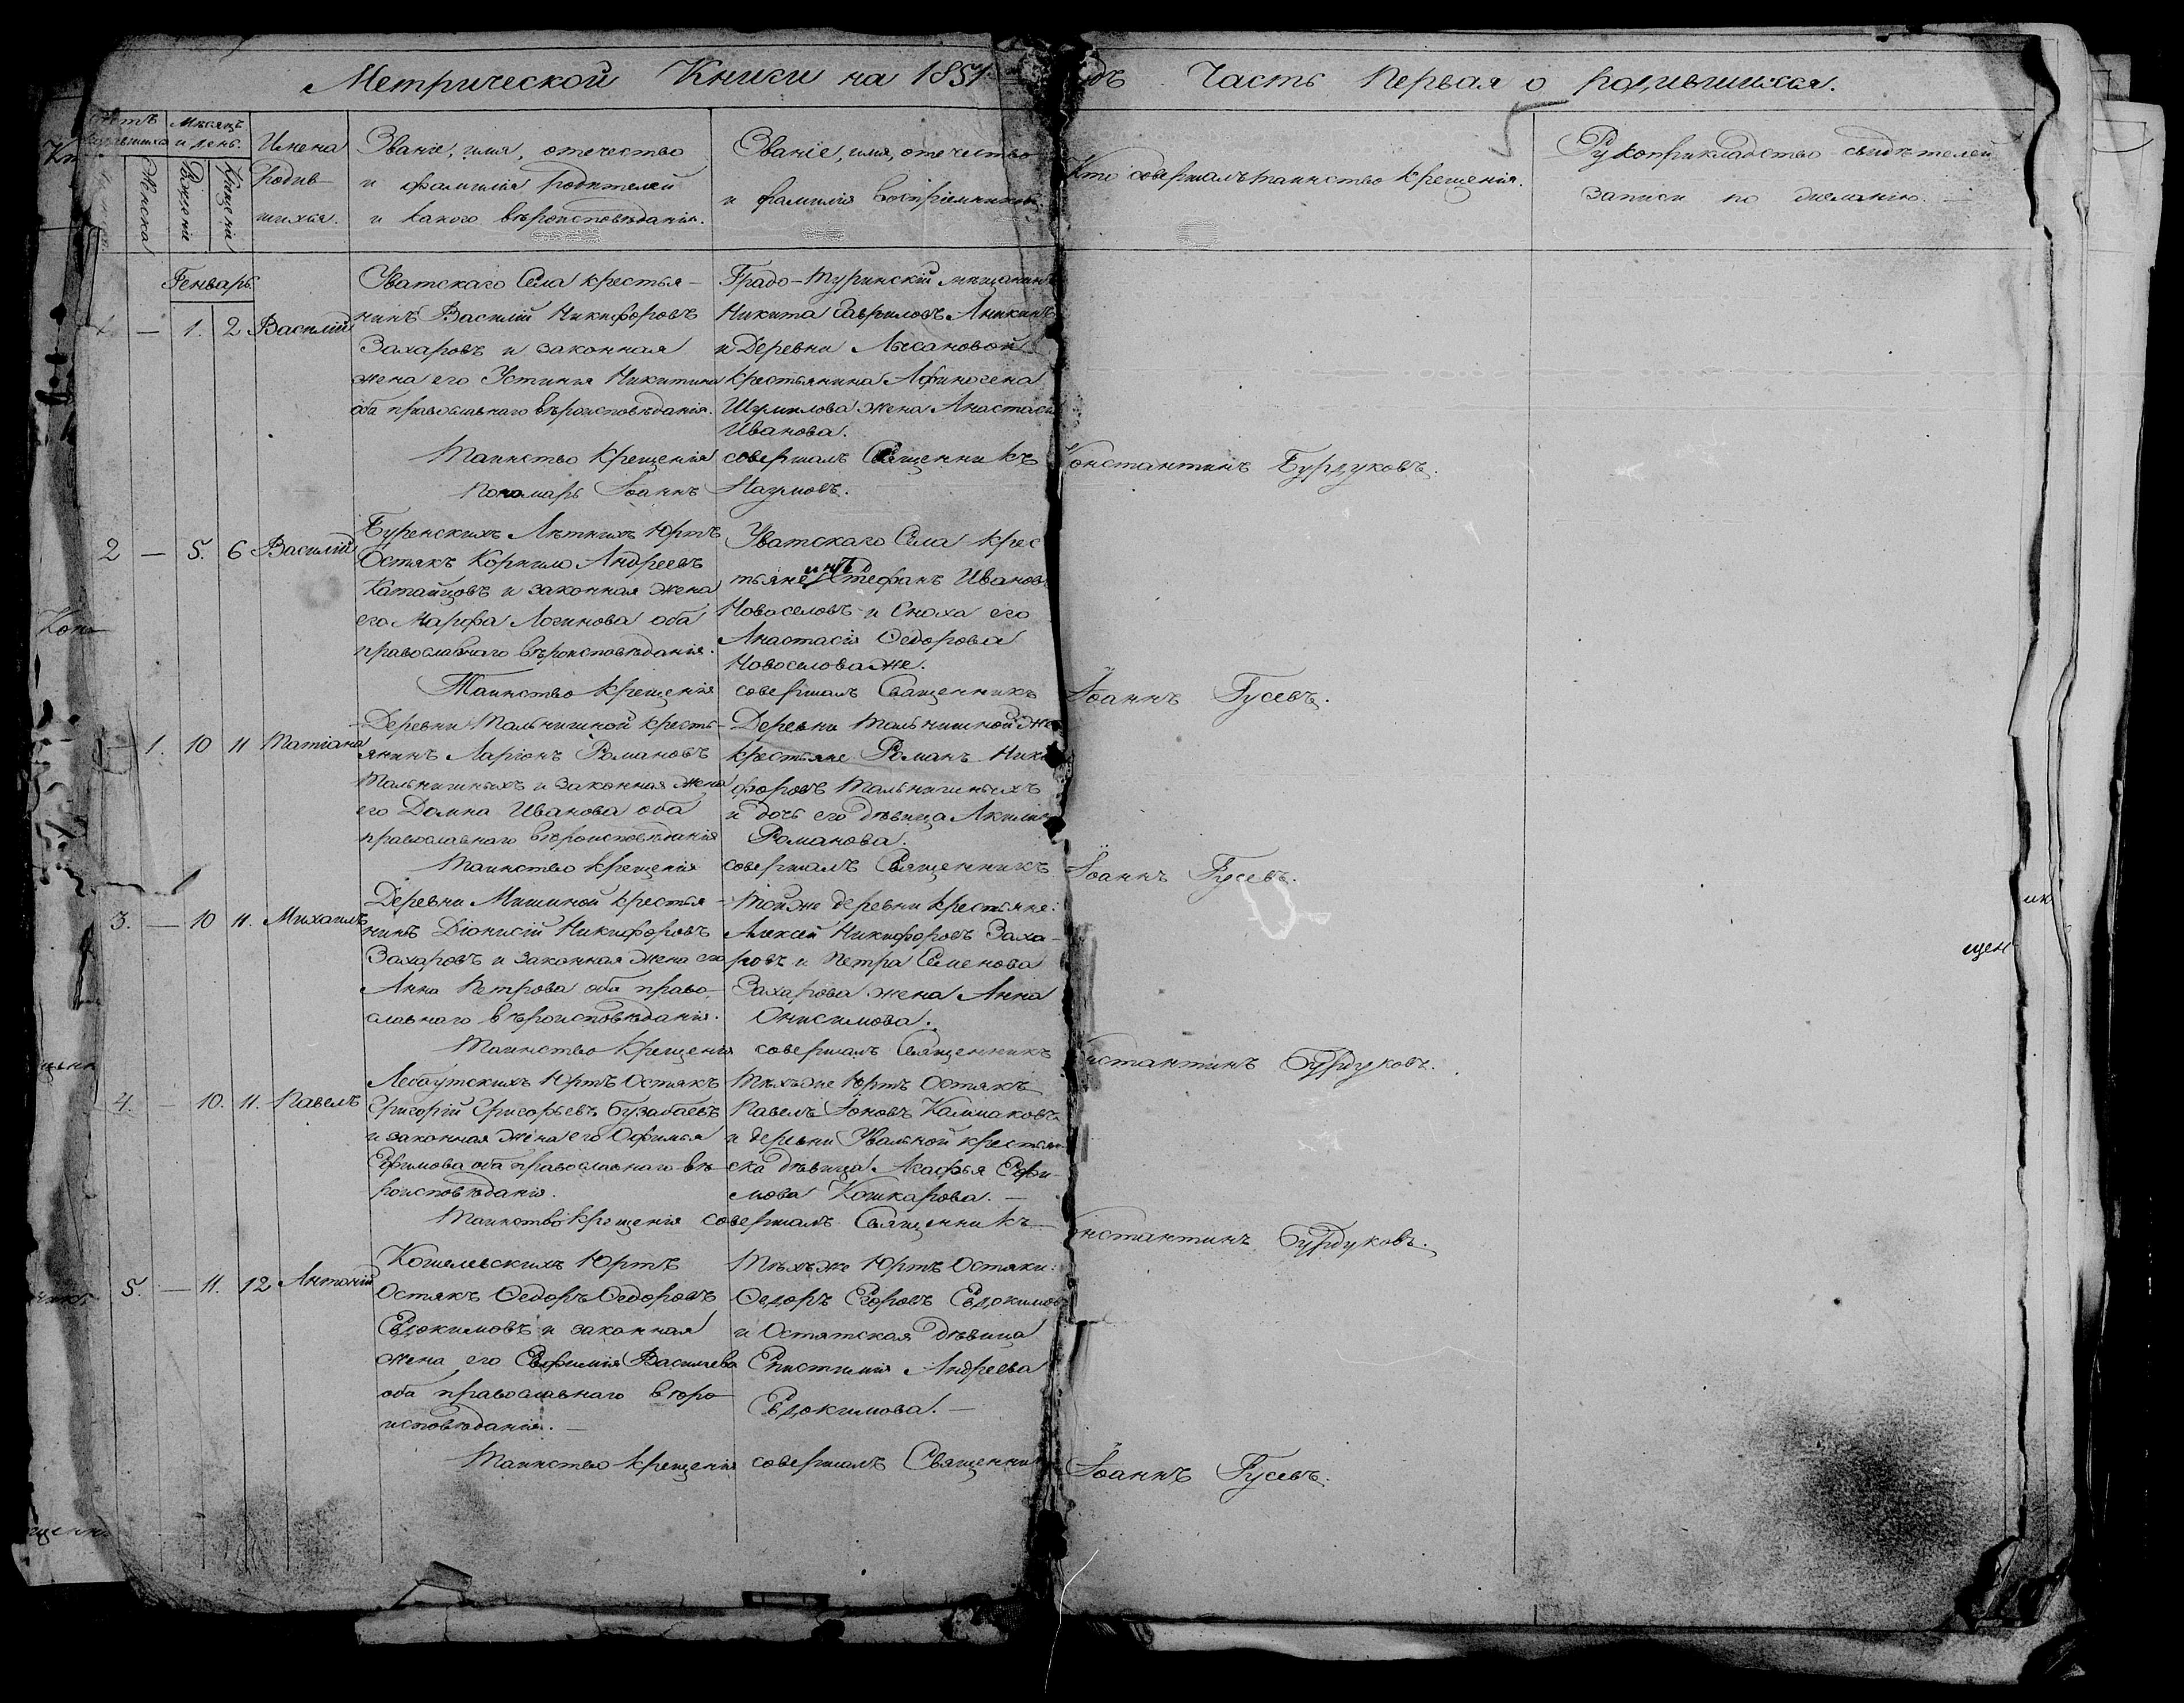 Метрической Книги на 1851 дъ Часть Первая о родившихся.
Мѣсяцъ и день.
Женска
Рожденія
Крещенія
Имена
родив-
шихся.
Званіе, имя, отечество
и фамилія родителей
и какого вѣроисповѣданія.
Званіе, имя, отечество
и фамилія воспріемниковъ
Кто совершалъ таинство крещенія.
Рукоприкладство свидѣтелей
записи по желанію.
Генварь
1 — 1. 2 Василій
Уватскаго Села крестья-
нинъ Василій Никифоровъ
Захаровъ и законная
жена его Устинья Никитина
оба православнаго вѣроисповѣданія.
Градо-Туринскій мещанинъ
Никита Гавриловъ Аникинъ
и Деревни Лысановой
крестьянина Афиногена
Шумилова жена Анастасія
Иванова.
Таинство крещенія совершалъ Священникъ Константинъ Бурдуковъ.
Пономарь Іоаннъ Наумовъ.
2 — 5. 6 Василій
Буренскихъ Лѣтнихъ Юртъ
Остякъ Корнило Андреевъ
Катайцовъ и законная жена
его Марфа Логинова оба
православнаго вѣроисповѣданія.
Уватскаго Села крес
тьянинъ Стефанъ Ивановъ
Новоселовъ и Сноха его
Анастасія Ѳедорова
Новоселова же.
Таинство крещенія совершалъ Священникъ Іоаннъ Гусевъ.
— 1. 10 11 Татіана
Деревни Тальничной кресть-
янинъ Ларіонъ Романовъ
Тальничныхъ и законная жена
его Домна Иванова оба
православнаго вѣроисповѣданія
Деревни Тальничной же
крестьяне Романъ Ники
форовъ Тальничныхъ
и дочь его дѣвица Акилина
Романова.
Таинство крещенія совершалъ Священникъ Іоаннъ Гусевъ.
3. — 10 11. Михаилъ
Деревни Мишиной крестья-
нинъ Діонисій Никифоровъ
Захаровъ и законная жена его
Анна Петрова оба право-
славнаго вѣроисповѣданія.
Той же деревни крестьяне:
Алексей Никифоровъ Заха-
ровъ и Петра Семенова
Захарова жена Анна
Онисимова.
Таинство крещенія совершалъ Священникъ Константинъ Бурдуковъ.
4. — 10. 11. Павелъ
Лебаутскихъ Юртъ Остякъ
Григорій Григорьевъ Бузабаевъ
и законная жена его Офимья
Ефимова оба православнаго вѣ-
роисповѣданія.
Тѣхъ же Юртъ Остякъ
Павелъ Іоновъ Калмаковъ
и деревни Увальной крестьян-
ска дѣвица Агафья Ефи-
мова Кошкарова. —
Таинство крещенія совершалъ Священникъ — Константинъ Бурдуковъ.
5. — 11. 12 Антоній
Кошелевскихъ Юртъ
Остякъ Ѳедоръ Ѳедоровъ
Евдокимовъ и законная
жена его Евфимія Васильева
оба православнаго вѣро
исповѣданія. —
Тѣхъ же Юртъ Остяки:
Ѳедоръ Егоровъ Евдокимовъ
и Остятская дѣвица
Епистимія Андреева
Евдокимова. —
Таинство крещенія совершалъ Священникъ Іоаннъ Гусевъ.